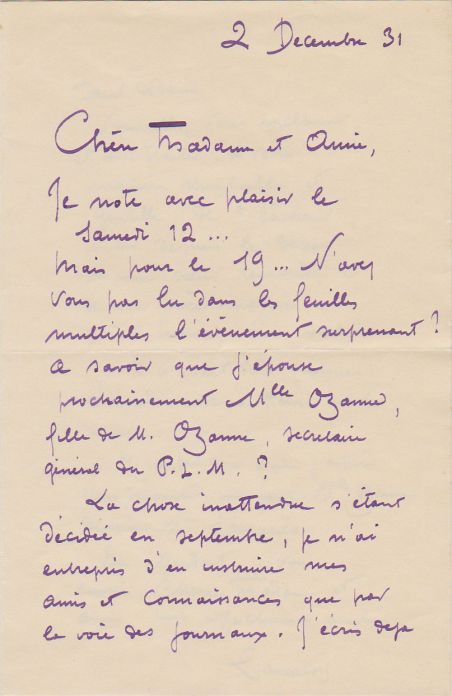 2 Decembre 31
Chère Madame et Amie,
Je note avec plaisir le
Samedi 12 ...
Mais pour le 19 ... N'avez
vous pas lu dans les feuilles
multiples l'évènement surprenant ?
a savoir que j'épouse
prochainement Mlle Ozanne,
fille de M. Ozanne, secretaire
général du P.L.M. ?
La chose inattendue s'étant
décidée en septembre, je n'ai
entrepris d'en instruire mes
amis et connaissances que par
la voie des journaux. J'écris deja